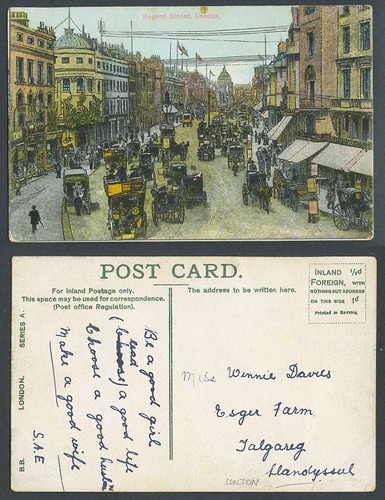 Regent Street, London.
POST CARD.
For Inland Postage only.
This space may be used for correspondence.
(Post office Regulation).
The address to be written here.
INLAND ½d
FOREIGN, WITH
NOTHING BUT ADDRESS
ON THIS SIDE 1d
Printed in Bavaria.
B.B. LONDON. SERIES A.
Be a good girl
lead
( ) a good life
Choose a good husband
Make a good wife
S.A.E
Miss Winnie Davies
Esger Farm,
Talgareg
Llandyssul
LONDON